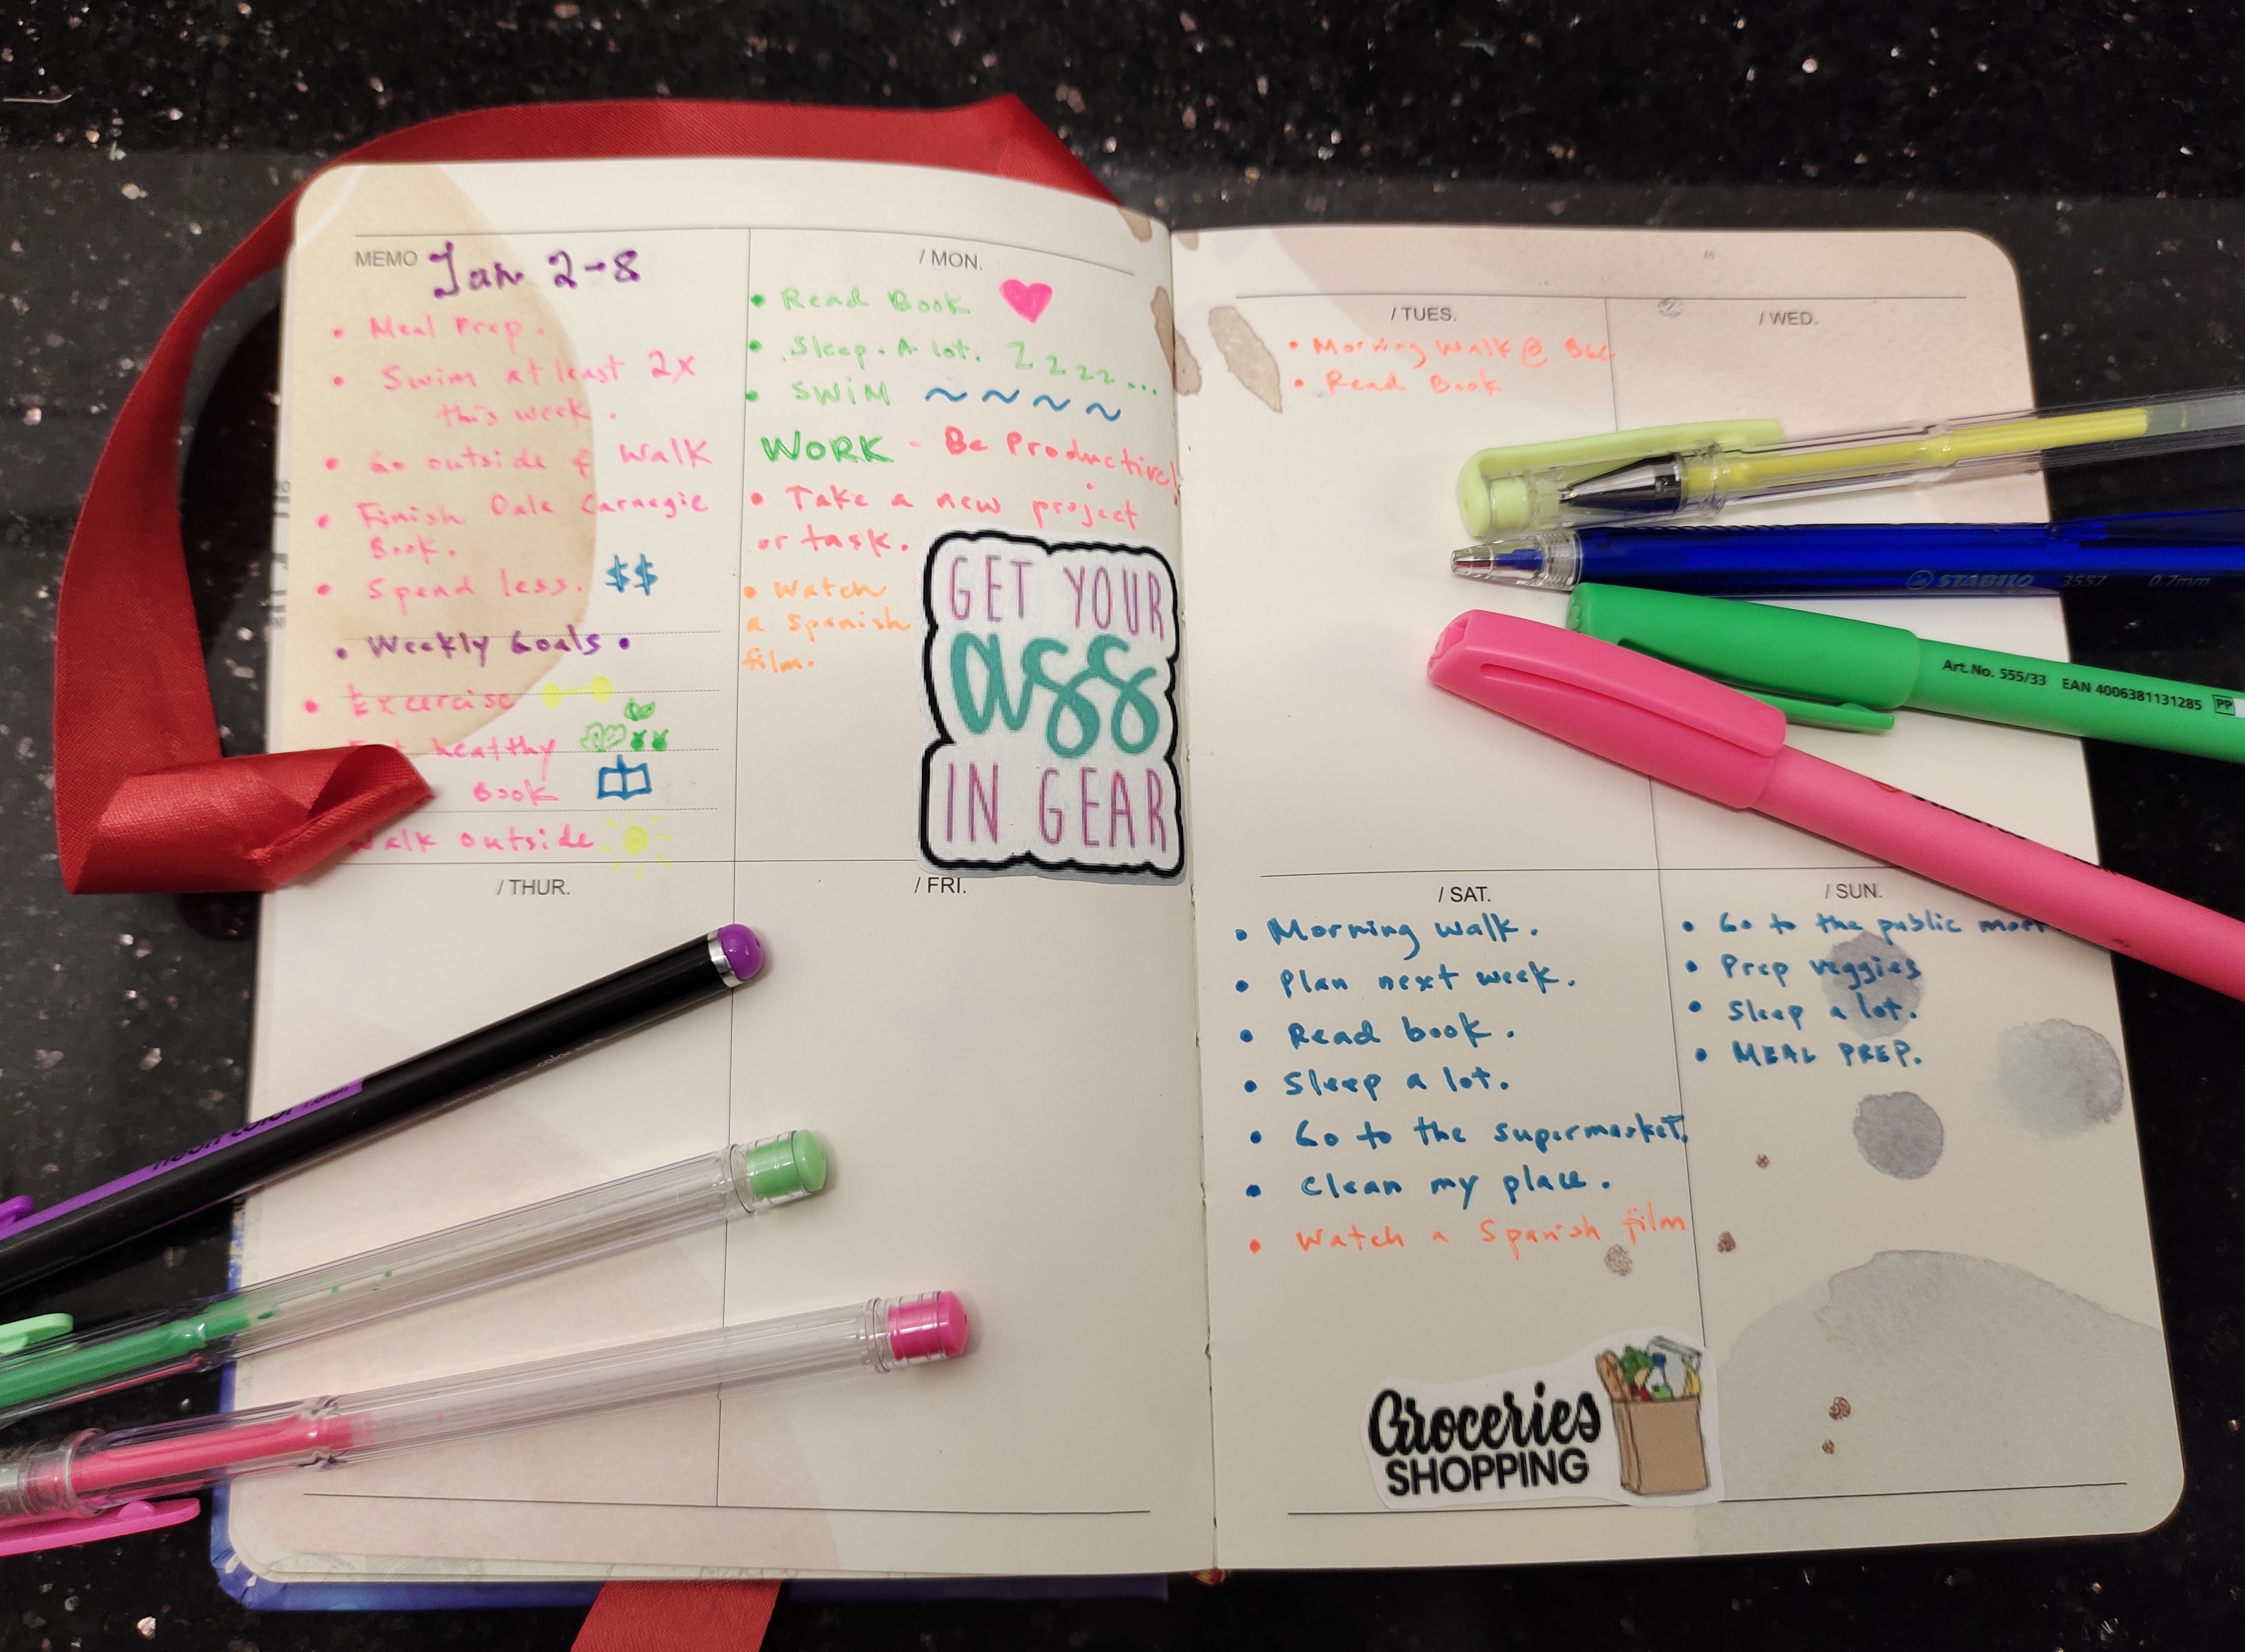 MEMO Jan 2-8
• Meal Prep.
• Swim at least 2x
this week.
• Go outside & Walk
• Finish Dale Carnegie
Book.
• Spend less. $$
• Weekly Goals •
• Excercise
healthy
Book
Walk outside
/ MON.
• Read Book
• Sleep. A lot. Zzzzz...
• SWIM
WORK - Be Productive!
• Take a new project
or task.
• Watch
a Spanish
film.
GET YOUR
ass
IN GEAR
/ TUES.
• Morning Walk @
• Read Book
/ WED.
STABILO 3557 0.7mm
Art. No. 555/33 EAN 4006381131285 PP
/ THUR.
/ FRI.
neon color
/ SAT.
• Morning walk.
• Plan next week.
• Read book.
• Sleep a lot.
• Go to the supermarket.
• Clean my place.
• Watch a Spanish film
Groceries
SHOPPING
/ SUN.
• Go to the public
• Prep veggies
• Sleep a lot.
• MEAL PREP.